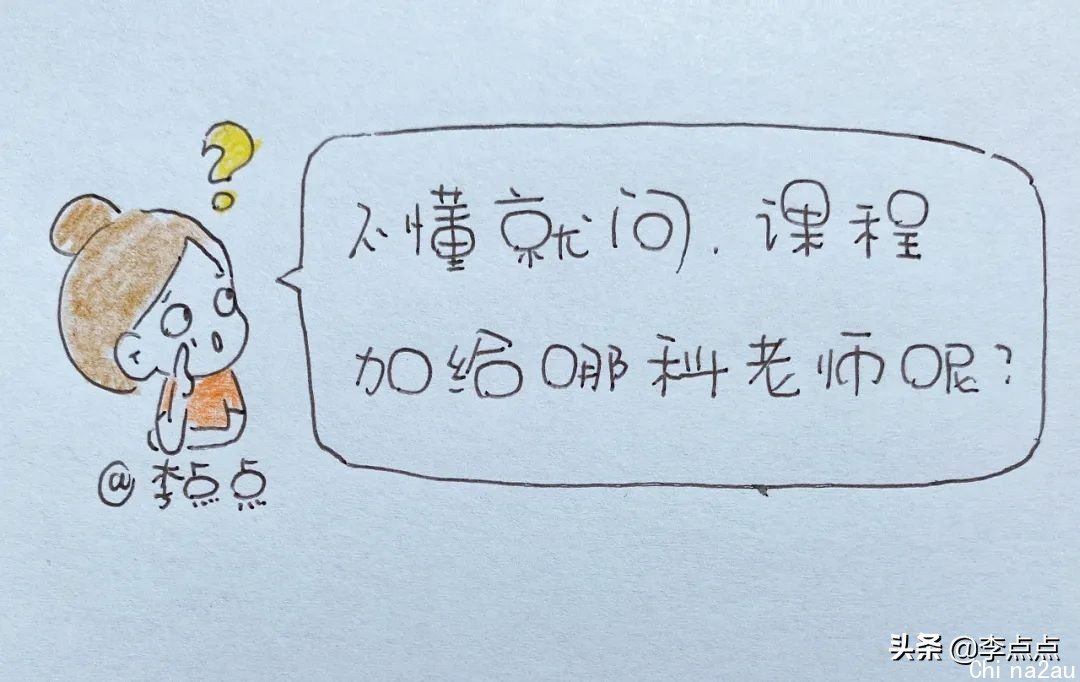 不懂就问，课程
加给哪科老师呢？
@李点点
头条 @李点点
Chi na2au